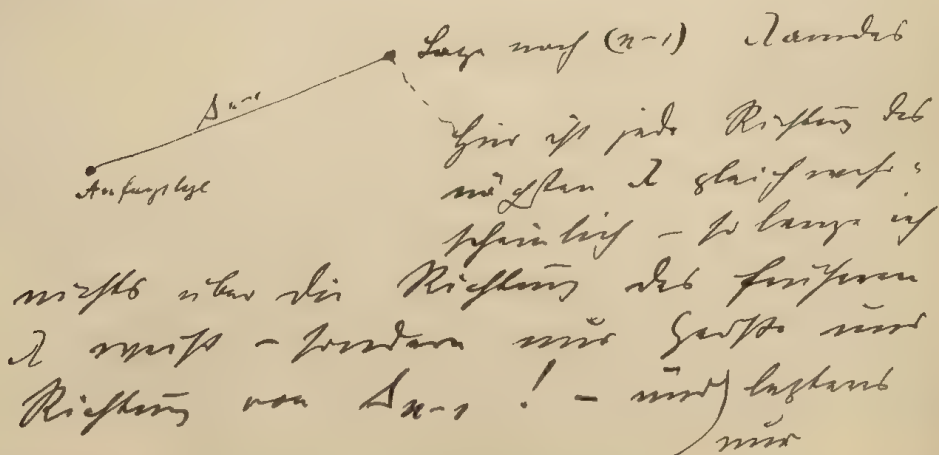 Lage nach (n-1) λamdas
Δn-1
Anfangslage
Hier ist jede Richtung des
nächsten λ gleich wahr-
scheinlich – so lange ich
nichts über die Richtung des früheren
λ weiß – sondern nur Größe und
Richtung von Δn-1 ! – und letztens
nur